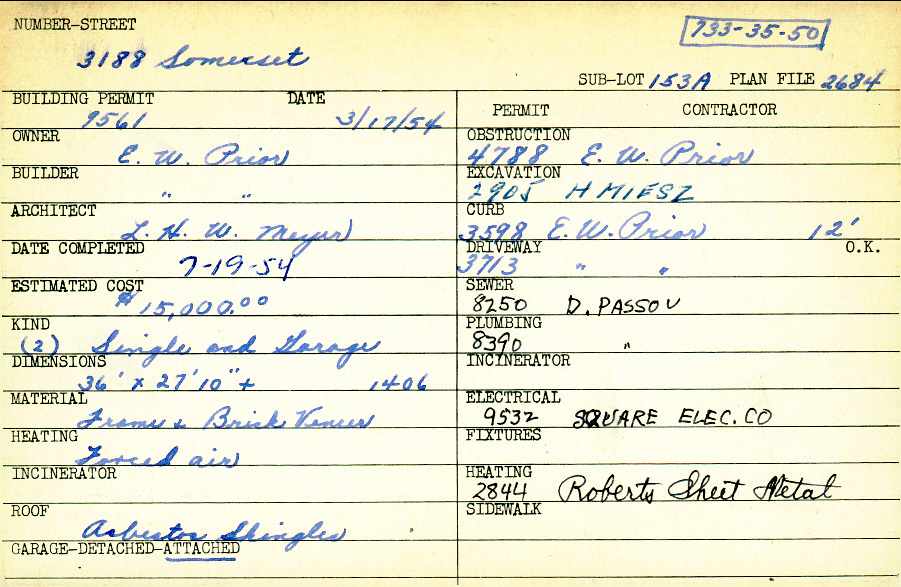 NUMBER-STREET
733-35-50
3188 Somerset
SUB-LOT 153A PLAN FILE 2684
BUILDING PERMIT DATE
9561 3/17/54
OWNER
E. W. Prior
BUILDER
" "
ARCHITECT
L. H. W. Meyer
DATE COMPLETED
7-19-54
ESTIMATED COST
$15,000.00
KIND
(2) Single and Garage
DIMENSIONS
36' x 27'10"+ 1406
MATERIAL
Frame & Brick Veneer
HEATING
Forced air
INCINERATOR
ROOF
Asbestos Shingles
GARAGE-DETACHED-ATTACHED
PERMIT CONTRACTOR
OBSTRUCTION
4788 E. W. Prior
EXCAVATION
2905 H MIESZ
CURB
3598 E. W. Prior 12'
DRIVEWAY O.K.
3713 " "
SEWER
8250 D. PASSOV
PLUMBING
8390 "
INCINERATOR
ELECTRICAL
9532 SQUARE ELEC. CO
FIXTURES
HEATING
2844 Roberts Sheet Metal
SIDEWALK